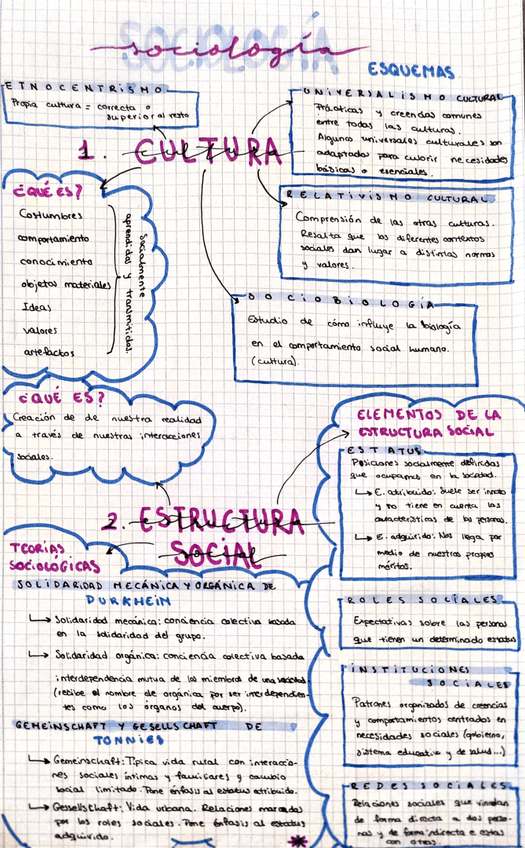 SOCIOLOGÍA
sociología
ESQUEMAS
ETNOCENTRISMO
Propia cultura = correcta o
superior al resto
1. CULTURA
UNIVERSALISMO CULTURAL
Prácticas y creencias comunes
entre todas las culturas.
Algunos universales culturales son
adaptados para cubrir necesidades
básicas o esenciales.
RELATIVISMO CULTURAL
Comprensión de las otras culturas.
Resalta que los diferentes contextos
sociales dan lugar a distintas normas
y valores.
SOCIOBIOLOGÍA
Estudio de cómo influye la biología
en el comportamiento social humano.
(cultura).
¿QUÉ ES?
Costumbres
comportamiento
conocimiento
objetos materiales
Ideas
valores
artefactos
Socialmente
aprendidos y transmitidos.
¿QUÉ ES?
Creación de de nuestra realidad
a través de nuestras interacciones
sociales.
2. ESTRUCTURA
SOCIAL
ELEMENTOS DE LA
ESTRUCTURA SOCIAL
ESTATUS
Posiciones socialmente definidas
que ocupamos en la sociedad.
E. adribuido: Suele ser innato
y no tiene en cuenta las
características de las personas.
E. adquirido: Nos llega por
medio de nuestros propios
méritos.
ROLES SOCIALES
Expectativas sobre las personas
que tienen un determinado estatus
INSTITUCIONES
SOCIALES
Patrones organizados de creencias
y comportamientos centrados en
necesidades sociales (gobierno,
sistema educativo y de salud...)
REDES SOCIALES
Relaciones sociales que vinculan
de forma directa a dos perso-
nas y de forma indirecta a estas
con otras.
TEORÍAS
SOCIOLÓGICAS
SOLIDARIDAD MECÁNICA Y ORGÁNICA DE
DURKHEIN
Solidaridad mecánica: conciencia colectiva basada
en la solidaridad del grupo.
Solidaridad orgánica: conciencia colectiva basada
interdependencia mutua de los miembros de una sociedad
(recibe el nombre de orgánica por ser interdependien-
tes como los órganos del cuerpo).
GEMEINSCHAFT Y GESELLSCHAFT DE
TONNIES
Gemeinschaft: Típica vida rural con interaccio-
nes sociales íntimas y familiares y cambio
social limitado. Pone énfasis al estatus atribuido.
Gesellschaft: Vida urbana. Relaciones marcadas
por los roles sociales. Pone énfasis al estatus
adquirido.